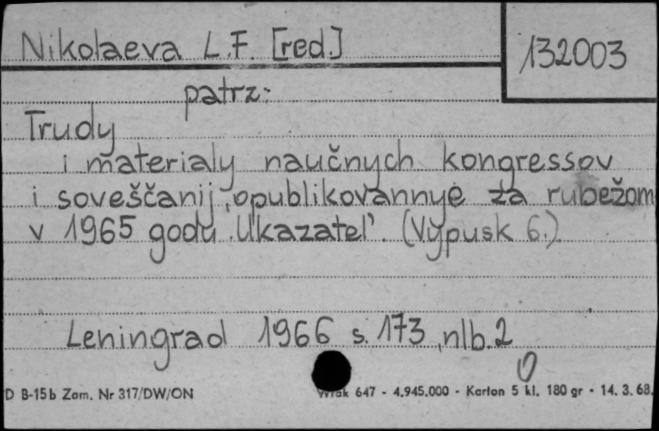 Nikolaeva L.F. [red.]
132003
patrz:
Trudy
i materialy naučnych kongressov
i soveščanij, opublikovannye za rubežom
v 1965 godu. Ukazatel'. (Vypusk 6.).
Leningrad 1966 s. 173, nlb. 2
D B-15b Zam. Nr 317/DW/ON
647 - 4.945.000 - Karton 5 kl. 180 gr - 14. 3. 68.